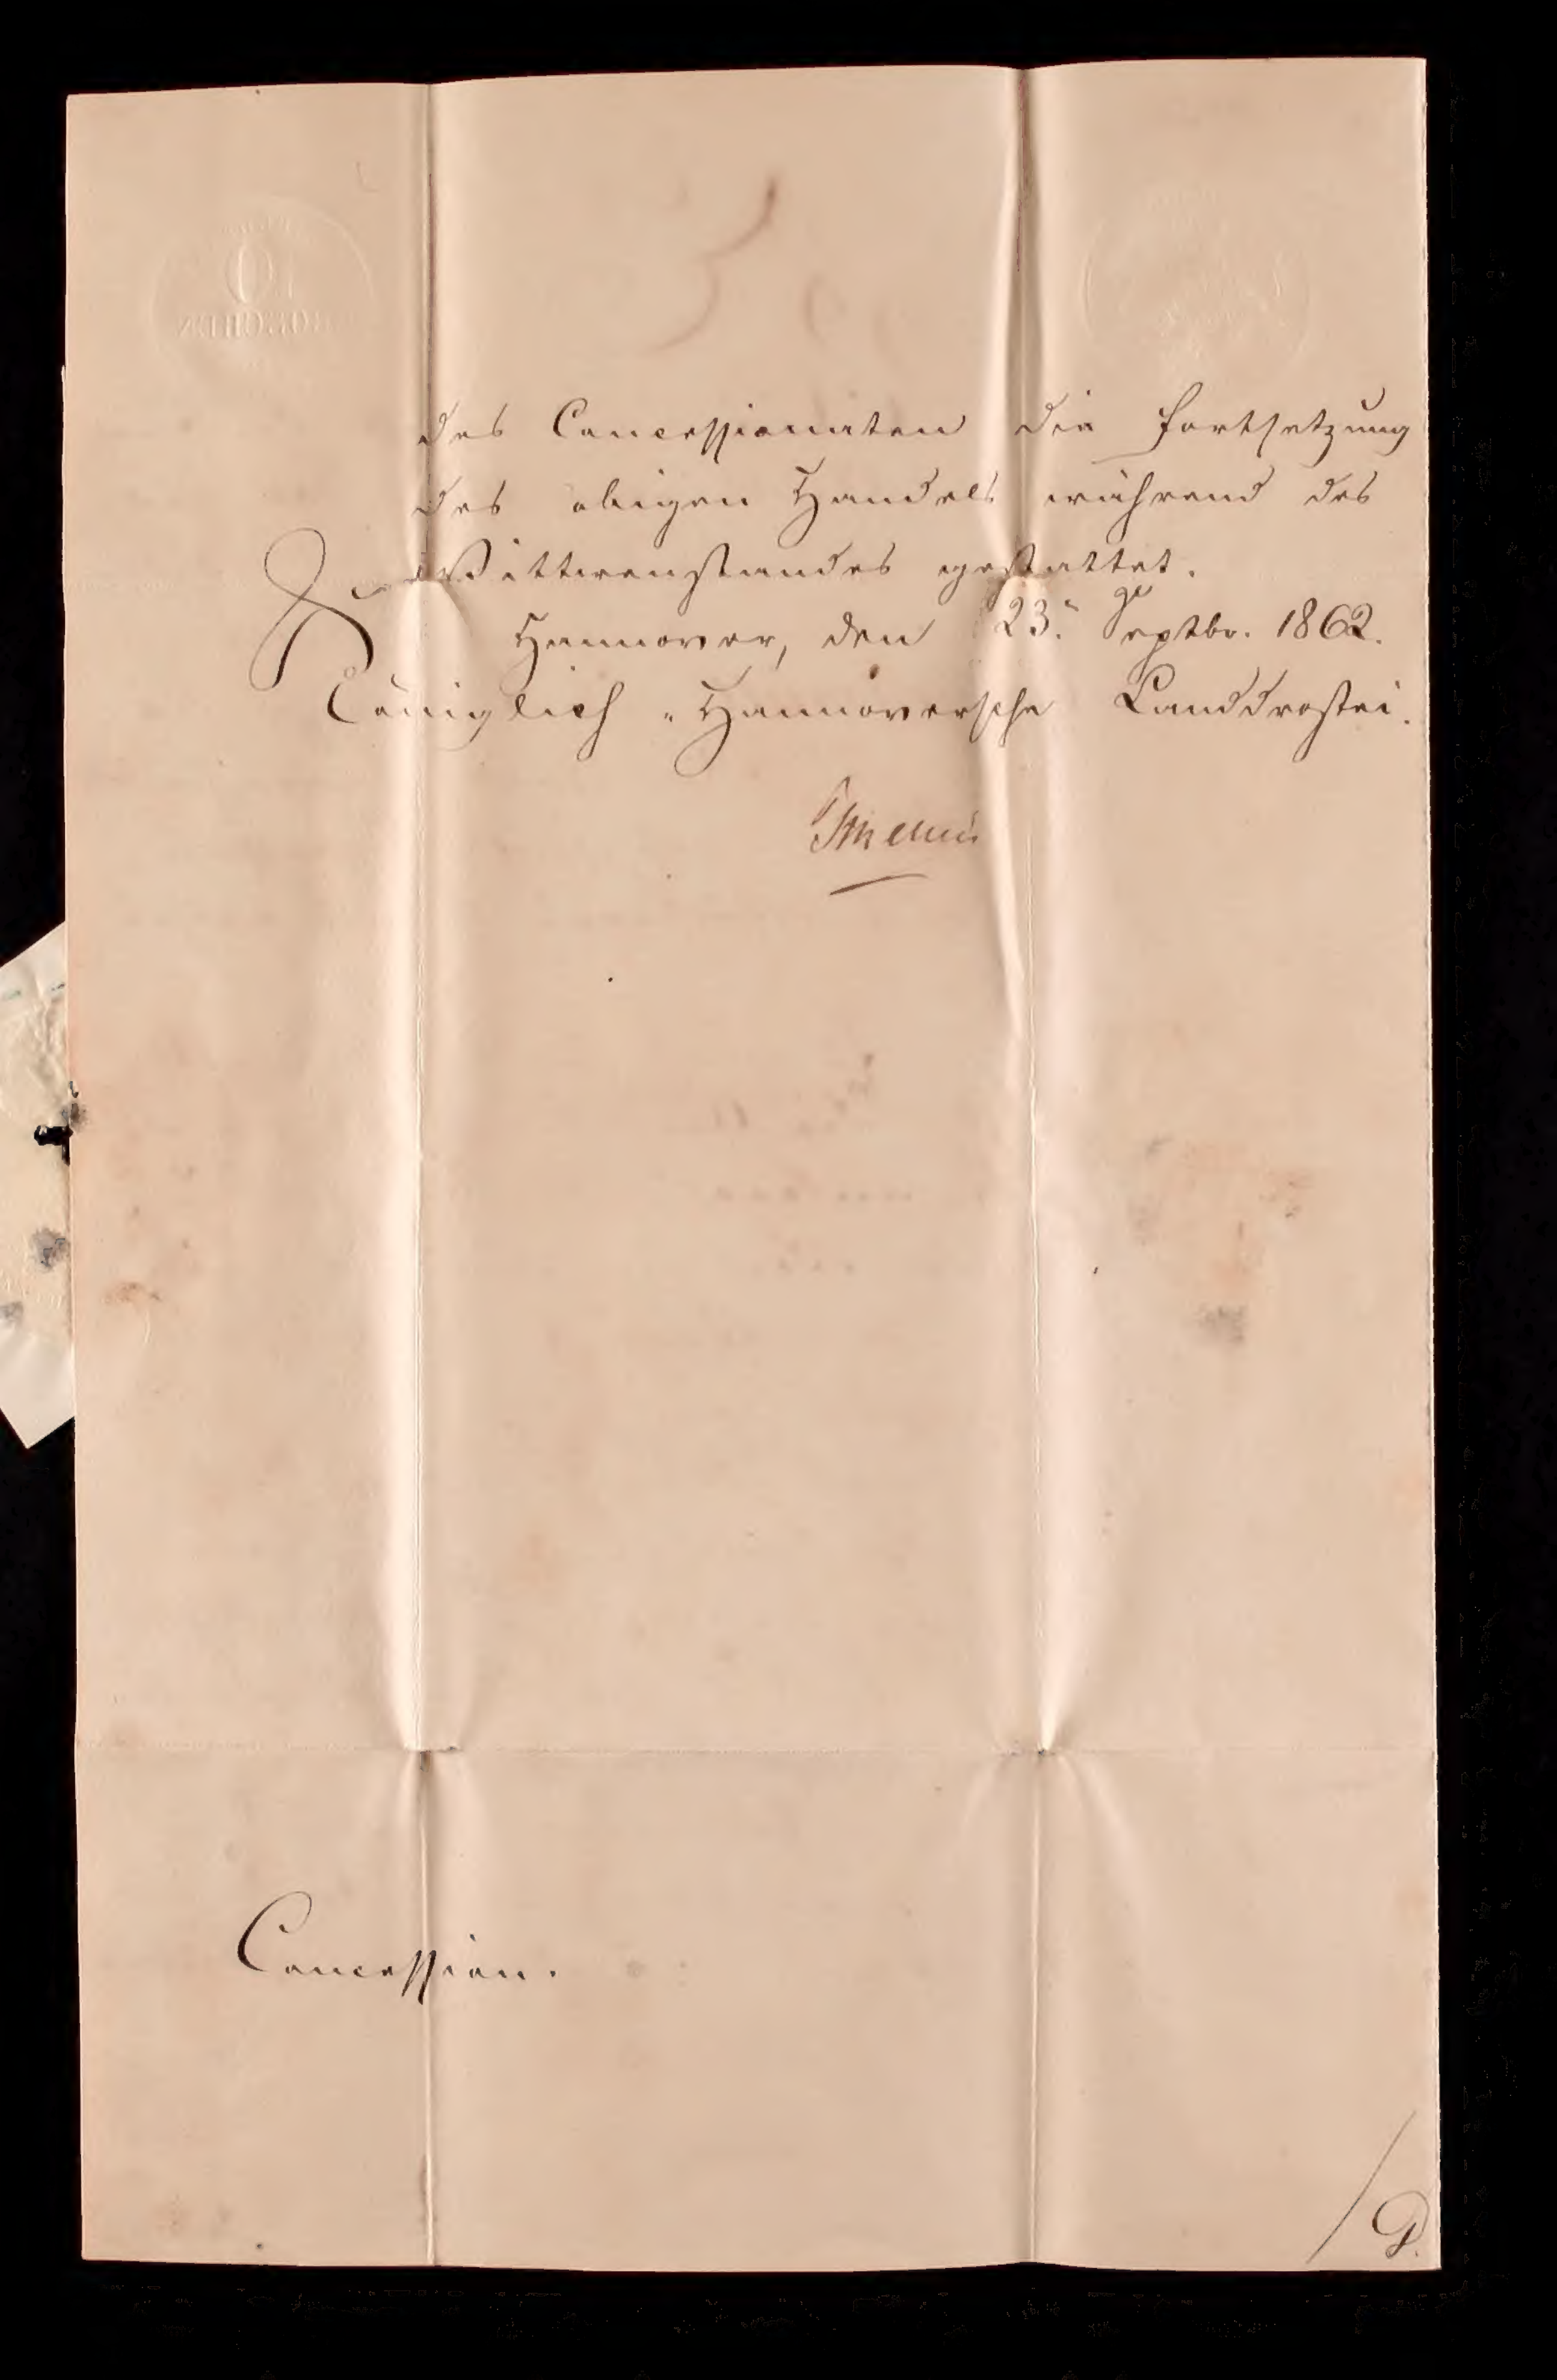 des Concessionaten die Fortsetzung
des obigen Handels während des
Wittwenstandes gestattet.
Hannover, den 23. Septbr. 1862.
Königlich-Hannoversche Landdrostei.
Concession.